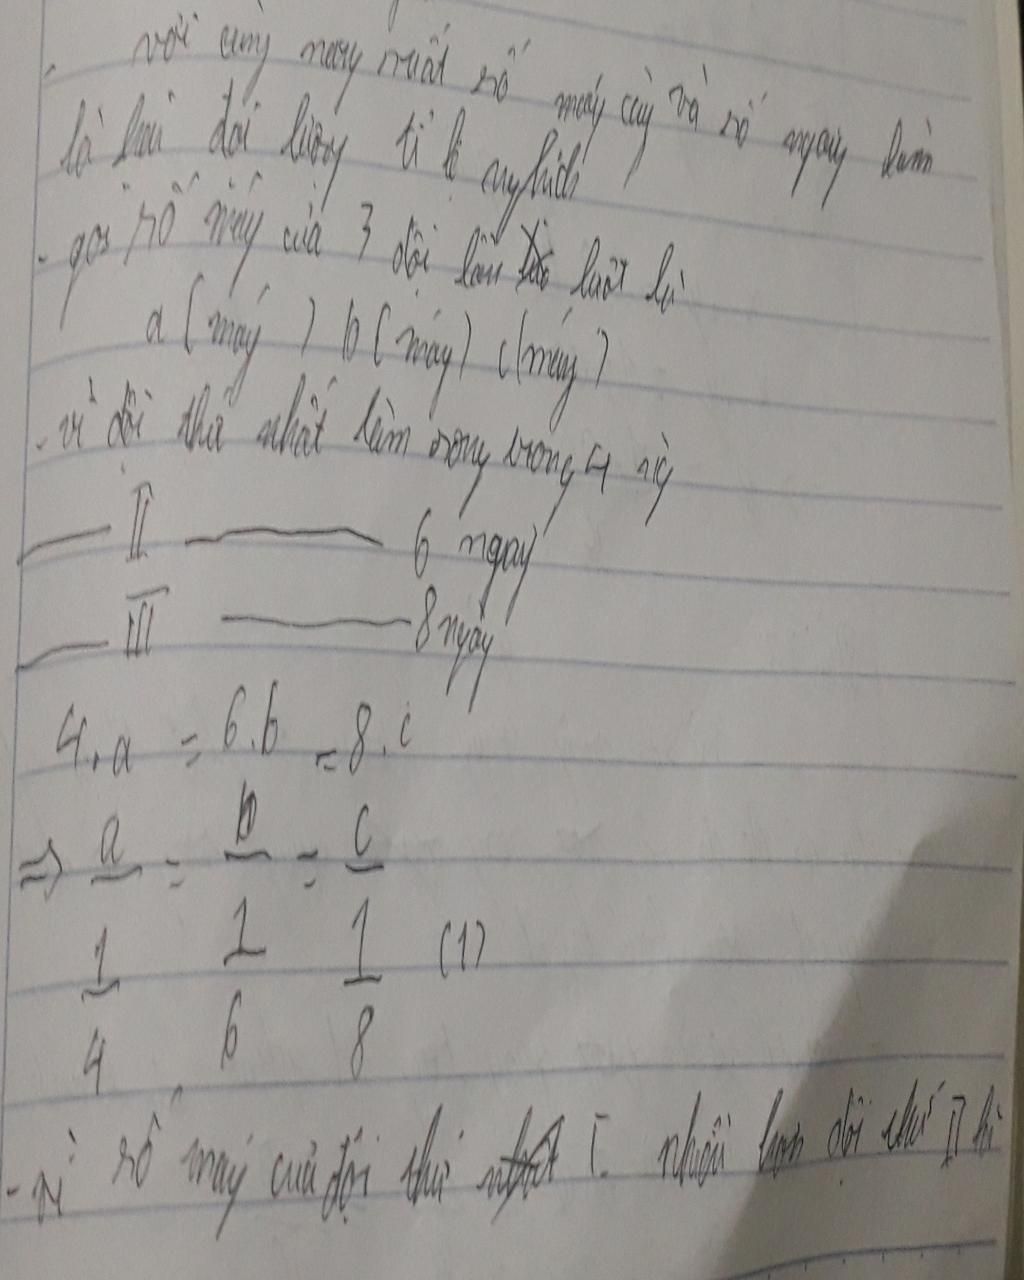 với cùng năng suất số máy cày và số ngày làm
là hai đại lượng tỉ lệ nghịch
- gọi số máy của 3 đội lần lượt là
a (máy) b (máy) c (máy)
- vì đội thứ nhất làm xong trong 4
II 6 ngày
III 8 ngày
4.a = 6.b = 8.c
=> a/(1/4) = b/(1/6) = c/(1/8) (1)
- vì số máy của đội thứ I nhiều hơn đội thứ II